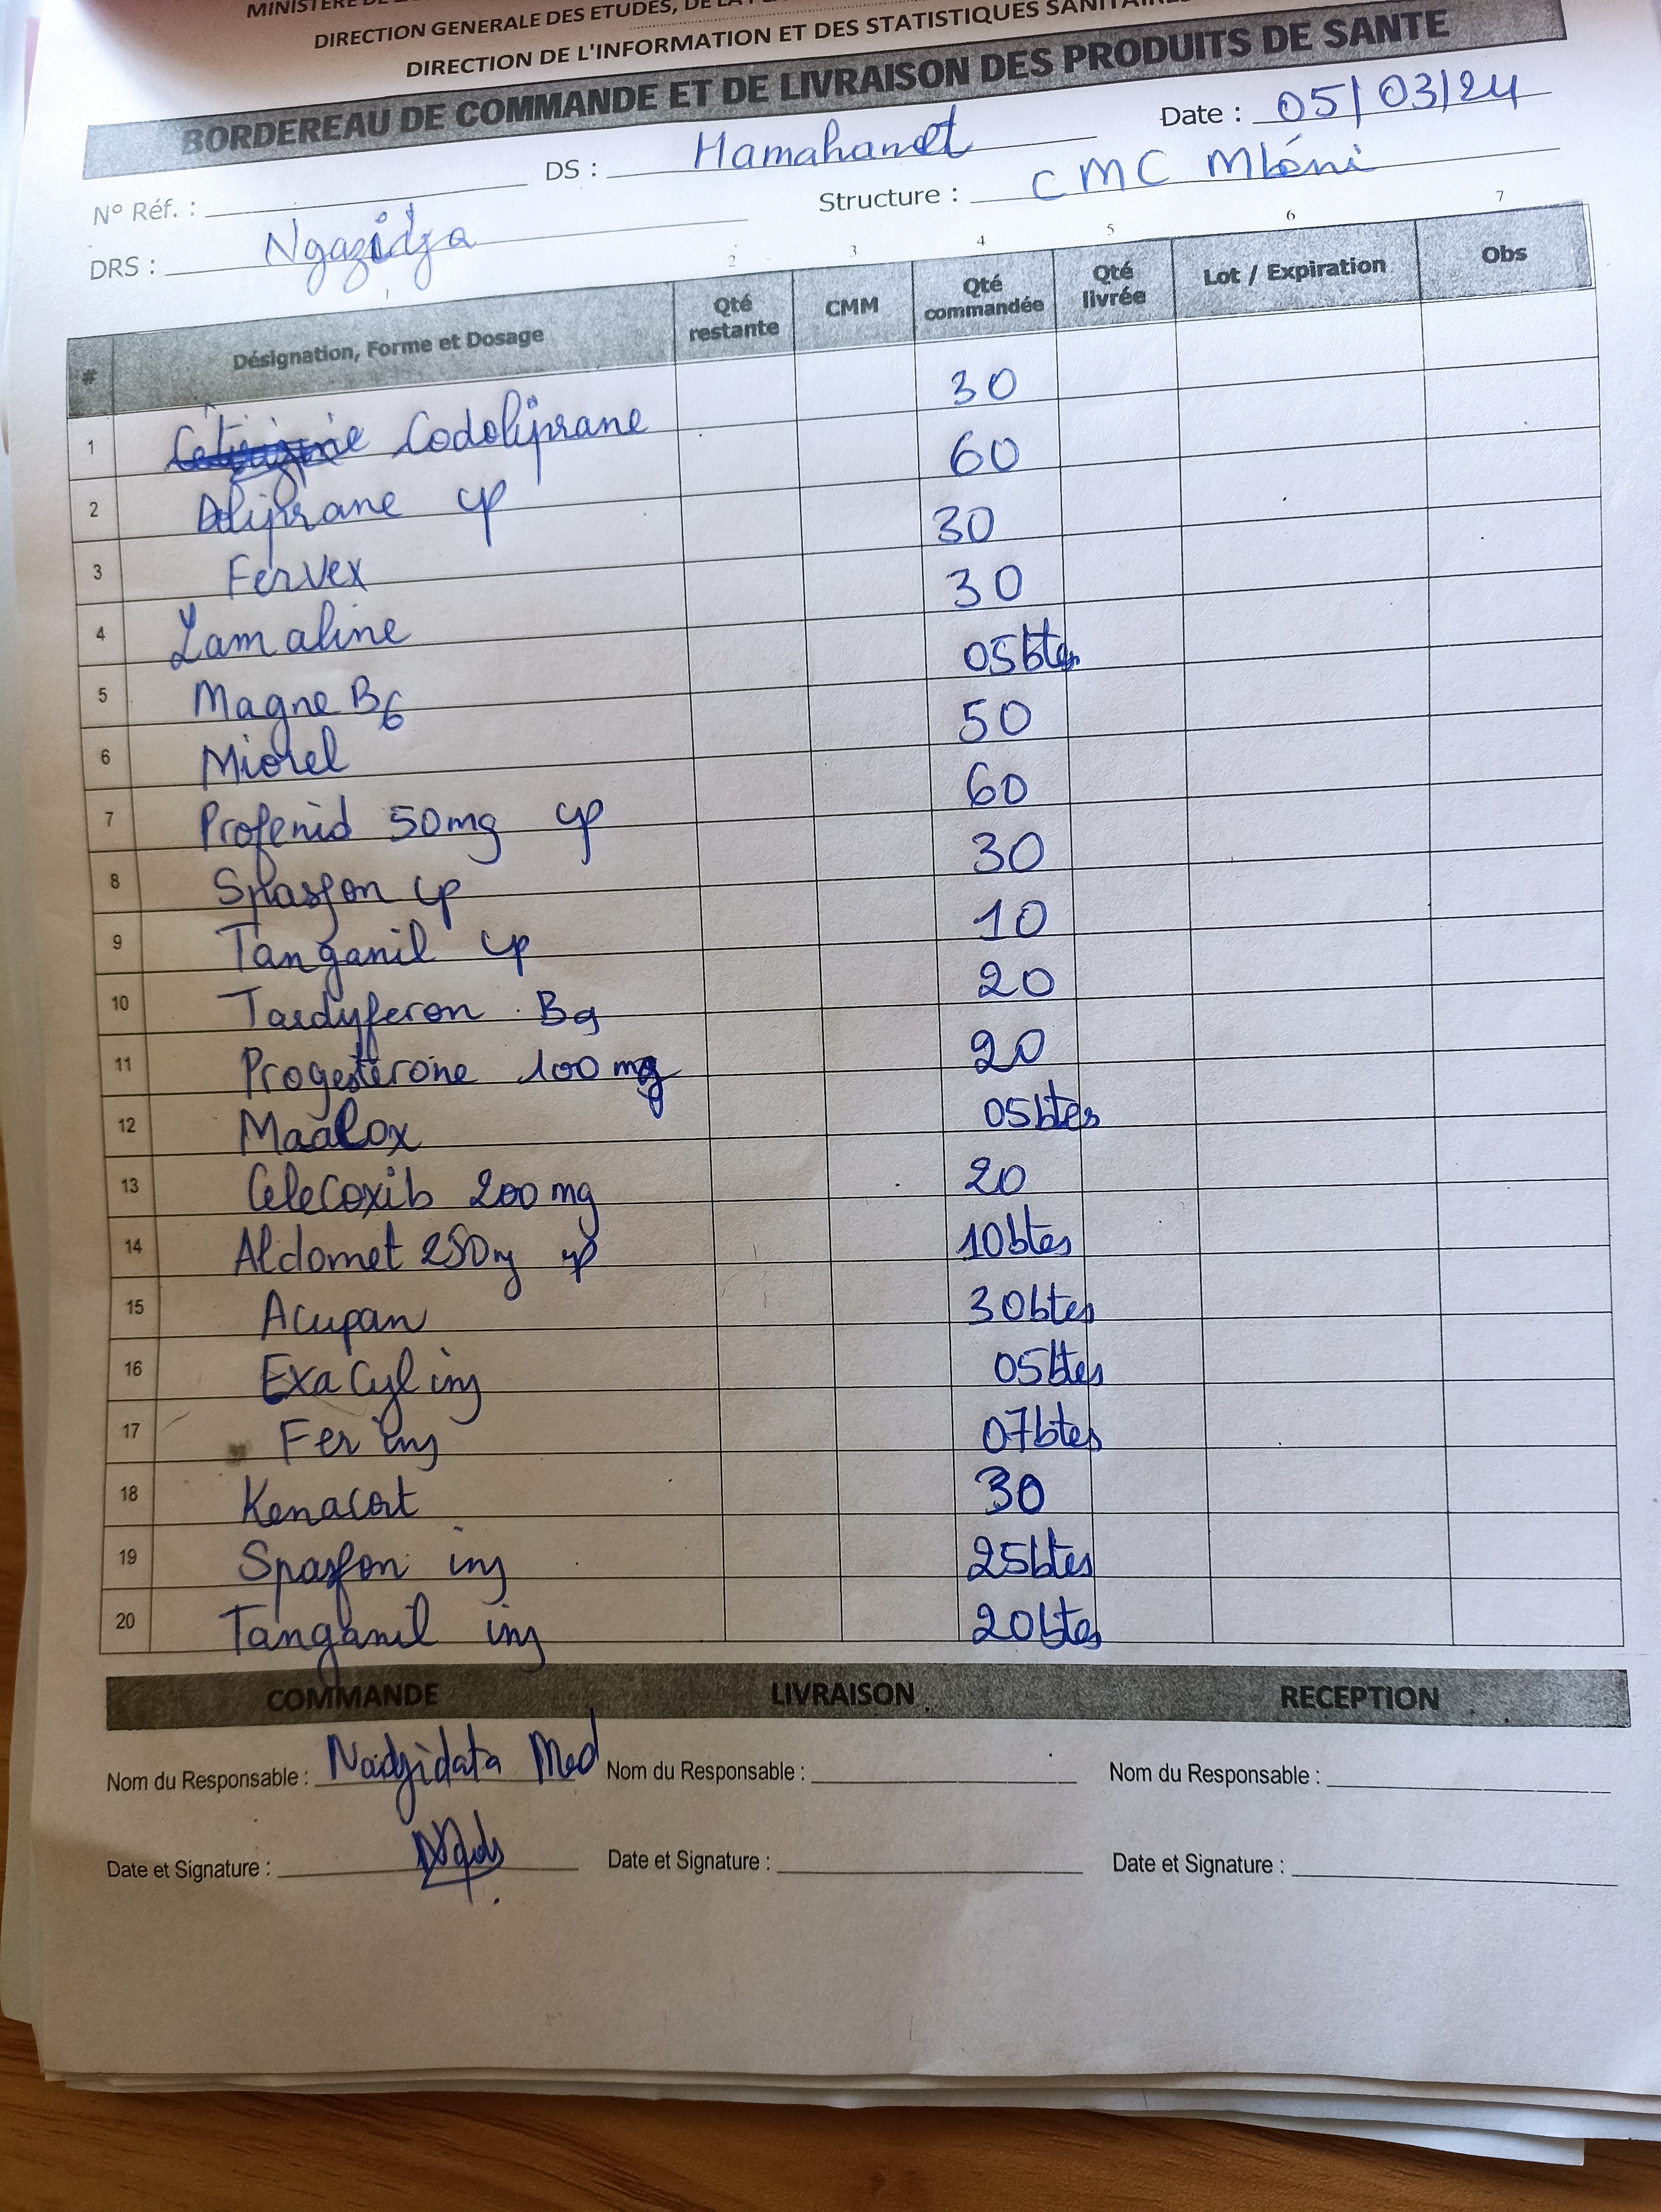 MINISTERE DE
DIRECTION GENERALE DES ETUDES, DE LA
DIRECTION DE L'INFORMATION ET DES STATISTIQUES SANITAIRES
BORDEREAU DE COMMANDE ET DE LIVRAISON DES PRODUITS DE SANTE
N° Réf. : DS : Hamahamet Date : 05/03/24
DRS : Ngazidja Structure : CMC Mbéni
1 2 3 4 5 6 7
# Désignation, Forme et Dosage Qté restante CMM Qté commandée Qté livrée Lot / Expiration Obs
1 Codoliprane 30
2 Doliprane cp 60
3 Fervex 30
4 Lamaline 30
5 Magne B6 05btes
6 Miorel 50
7 Profenid 50mg cp 60
8 Spasfon cp 30
9 Tanganil cp 10
10 Tardyferon B9 20
11 Progestérone 100 mg 20
12 Maalox 05btes
13 Celecoxib 200 mg 20
14 Aldomet 250mg cp 10btes
15 Acupan 30btes
16 Exacyl inj 05btes
17 Fer inj 07btes
18 Kenacort 30
19 Spasfon inj 25btes
20 Tanganil inj 20btes
COMMANDE LIVRAISON RECEPTION
Nom du Responsable : Nadjidata Med Nom du Responsable : Nom du Responsable :
Date et Signature : Date et Signature : Date et Signature :